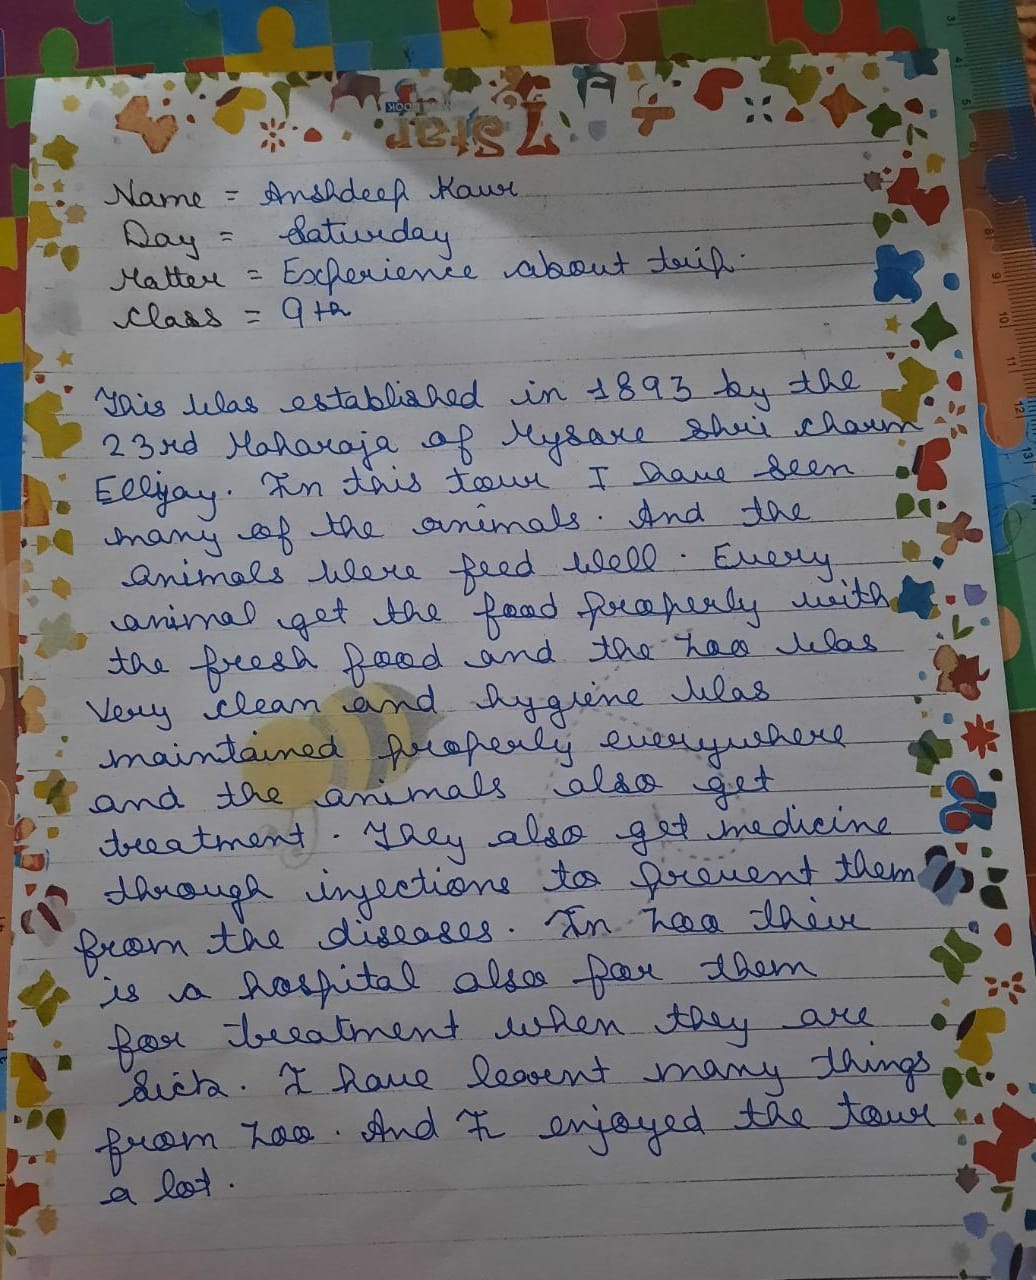 7 Star
Name = Anshdeep Kaur
Day = Saturday
Matter = Experience about trip.
Class = 9th
This was established in 1893 by the
23rd Maharaja of Mysore Shri charm
Ellijay. In this tour I have seen
many of the animals. And the
animals were feed well. Every
animal get the food properly with
the fresh food and the zoo was
Very clean and hygiene was
maintained properly everywhere
and the animals also get
treatment. They also get medicine
through injections to prevent them
from the diseases. In zoo their
is a hospital also for them
for treatment when they are
sick. I have learnt many things
from zoo. And I enjoyed the tour
a lot.